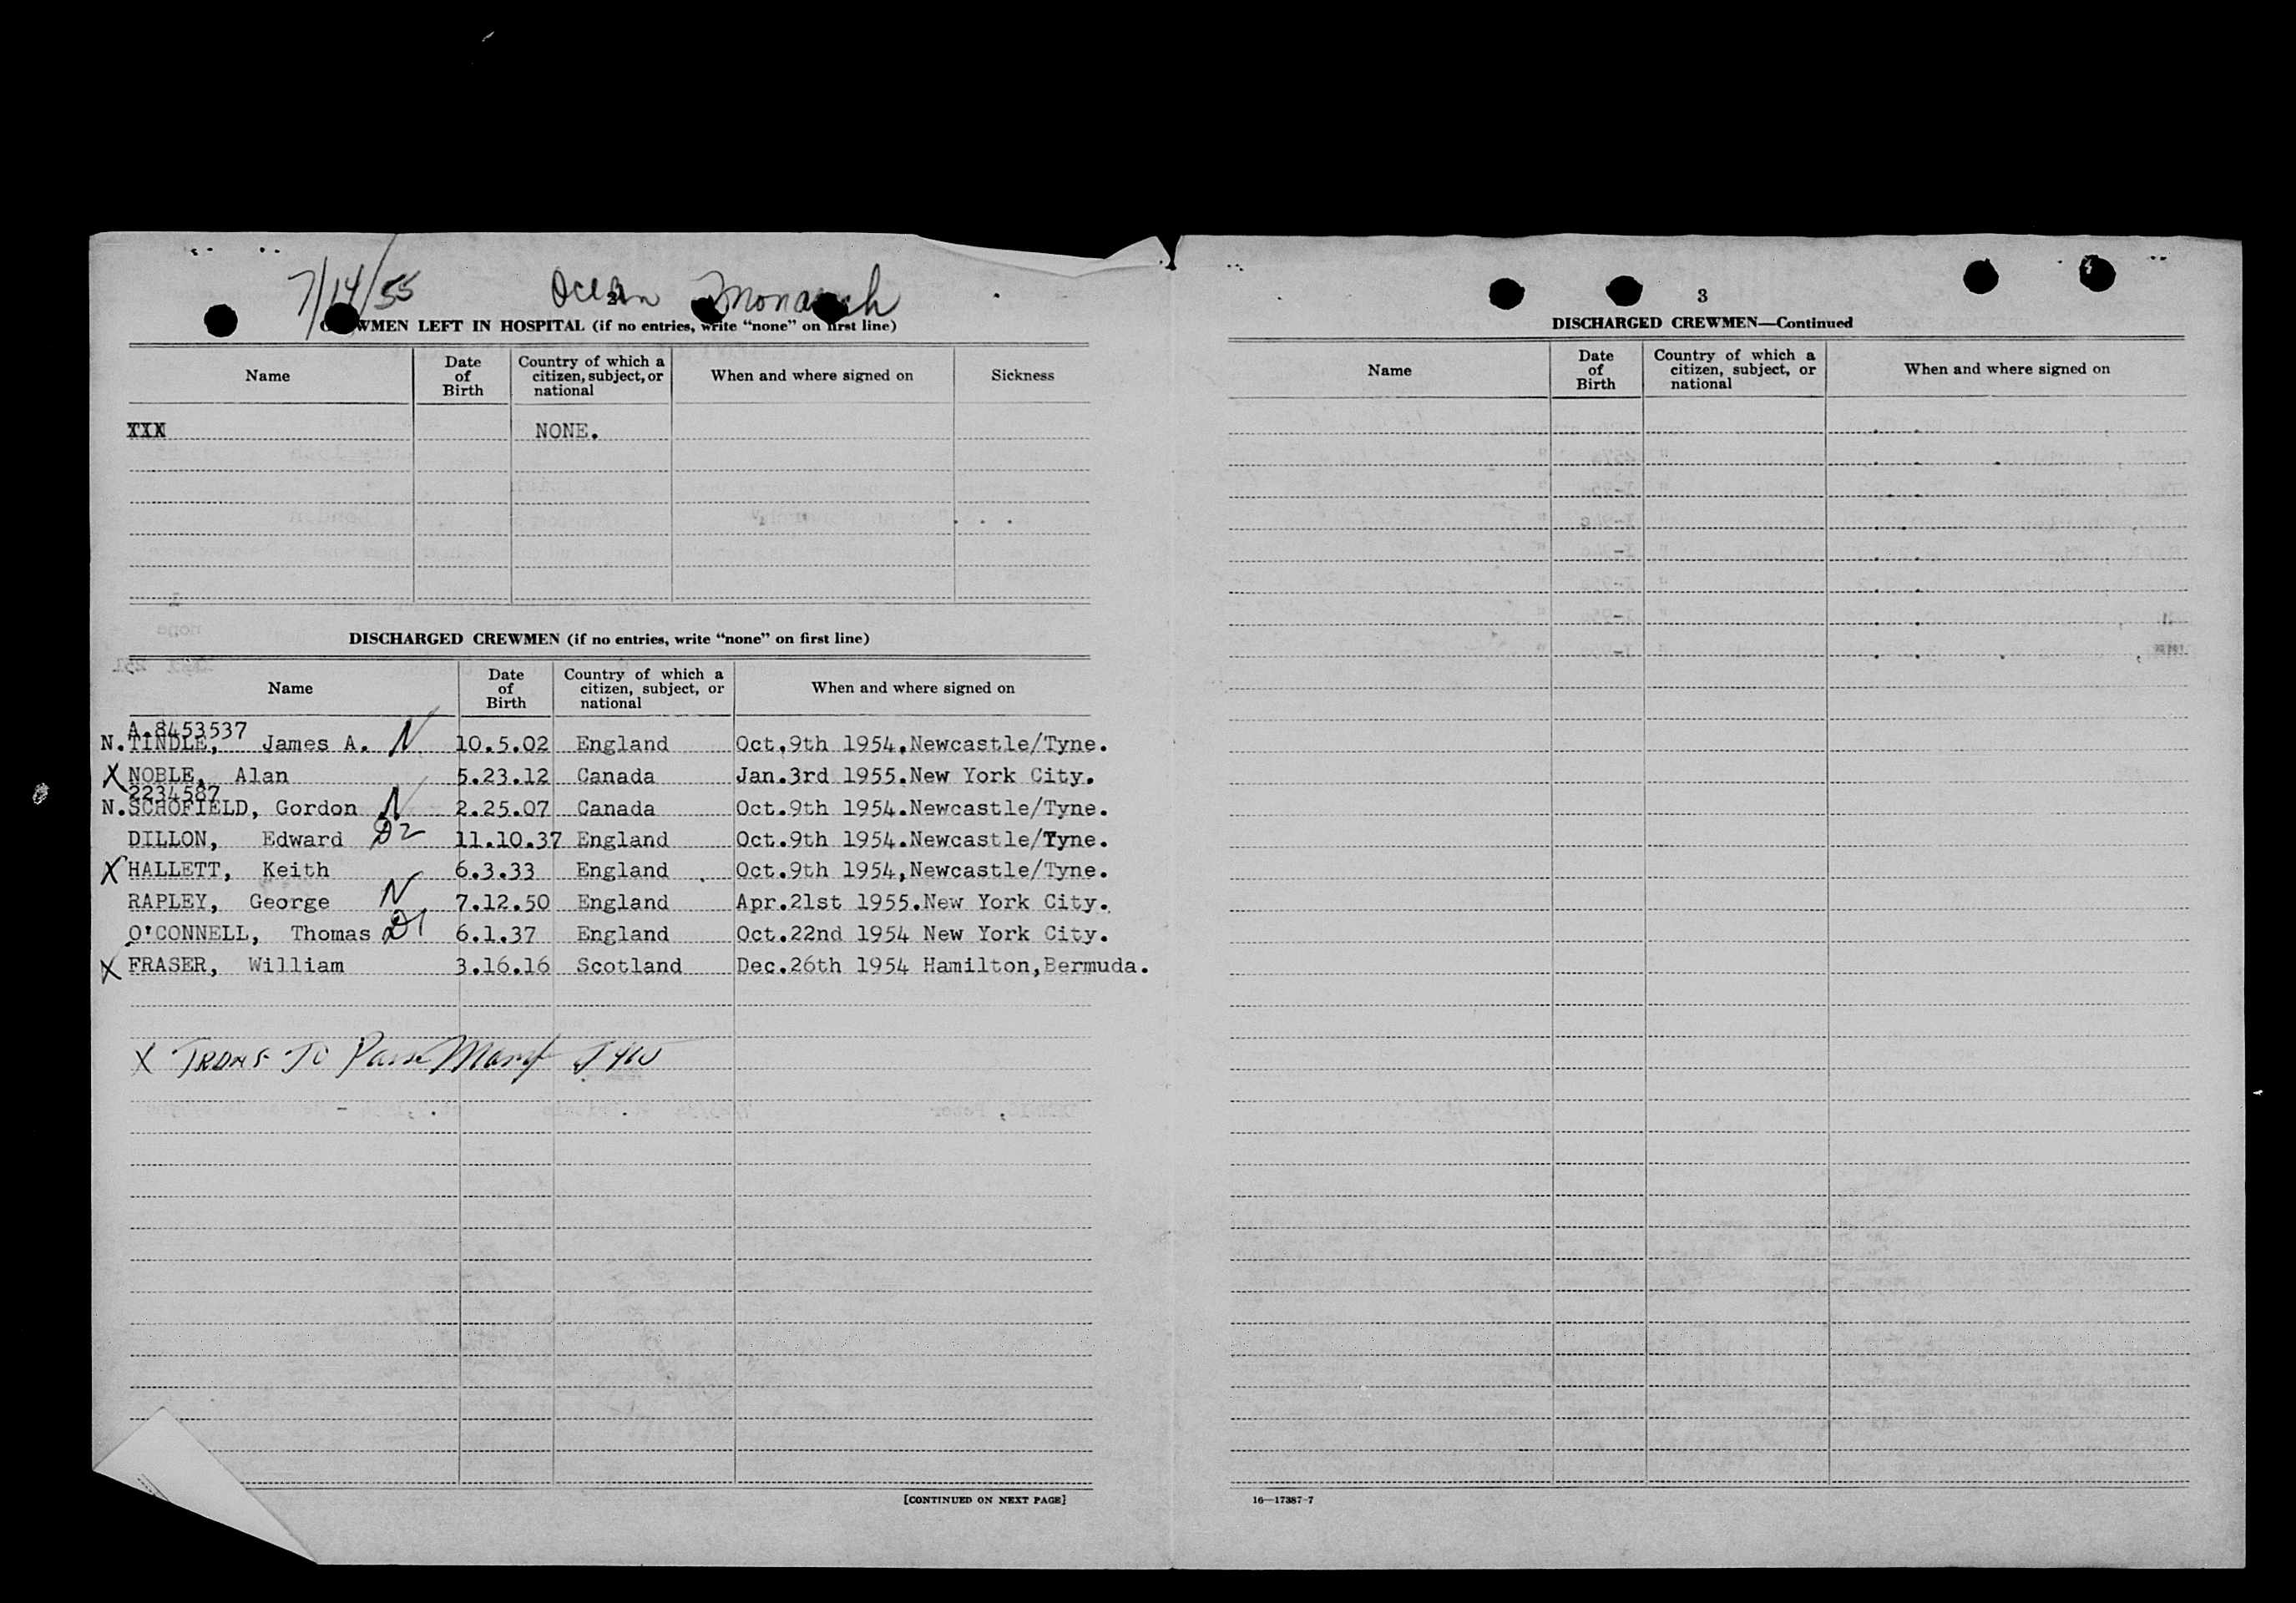 7/14/55 Ocean Monarch
CREWMEN LEFT IN HOSPITAL (if no entries, write “none” on first line)
Name Date of Birth Country of which a citizen, subject, or national When and where signed on Sickness
XXX NONE.
DISCHARGED CREWMEN (if no entries, write “none” on first line)
Name Date of Birth Country of which a citizen, subject, or national When and where signed on
A-8453537
N. TINDLE, James A. N 10.5.02 England Oct.9th 1954.Newcastle/Tyne.
X NOBLE, Alan 5.23.12 Canada Jan.3rd 1955.New York City.
2234587
N. SCHOFIELD, Gordon N 2.25.07 Canada Oct.9th 1954.Newcastle/Tyne.
DILLON, Edward D2 11.10.37 England Oct.9th 1954.Newcastle/Tyne.
X HALLETT, Keith 6.3.33 England Oct.9th 1954,Newcastle/Tyne.
RAPLEY, George N 7.12.50 England Apr.21st 1955.New York City.
O'CONNELL, Thomas D1 6.1.37 England Oct.22nd 1954 New York City.
X FRASER, William 3.16.16 Scotland Dec.26th 1954 Hamilton,Bermuda.
X TRANS TO
[CONTINUED ON NEXT PAGE]
3
DISCHARGED CREWMEN—Continued
Name Date of Birth Country of which a citizen, subject, or national When and where signed on
16—17387-7